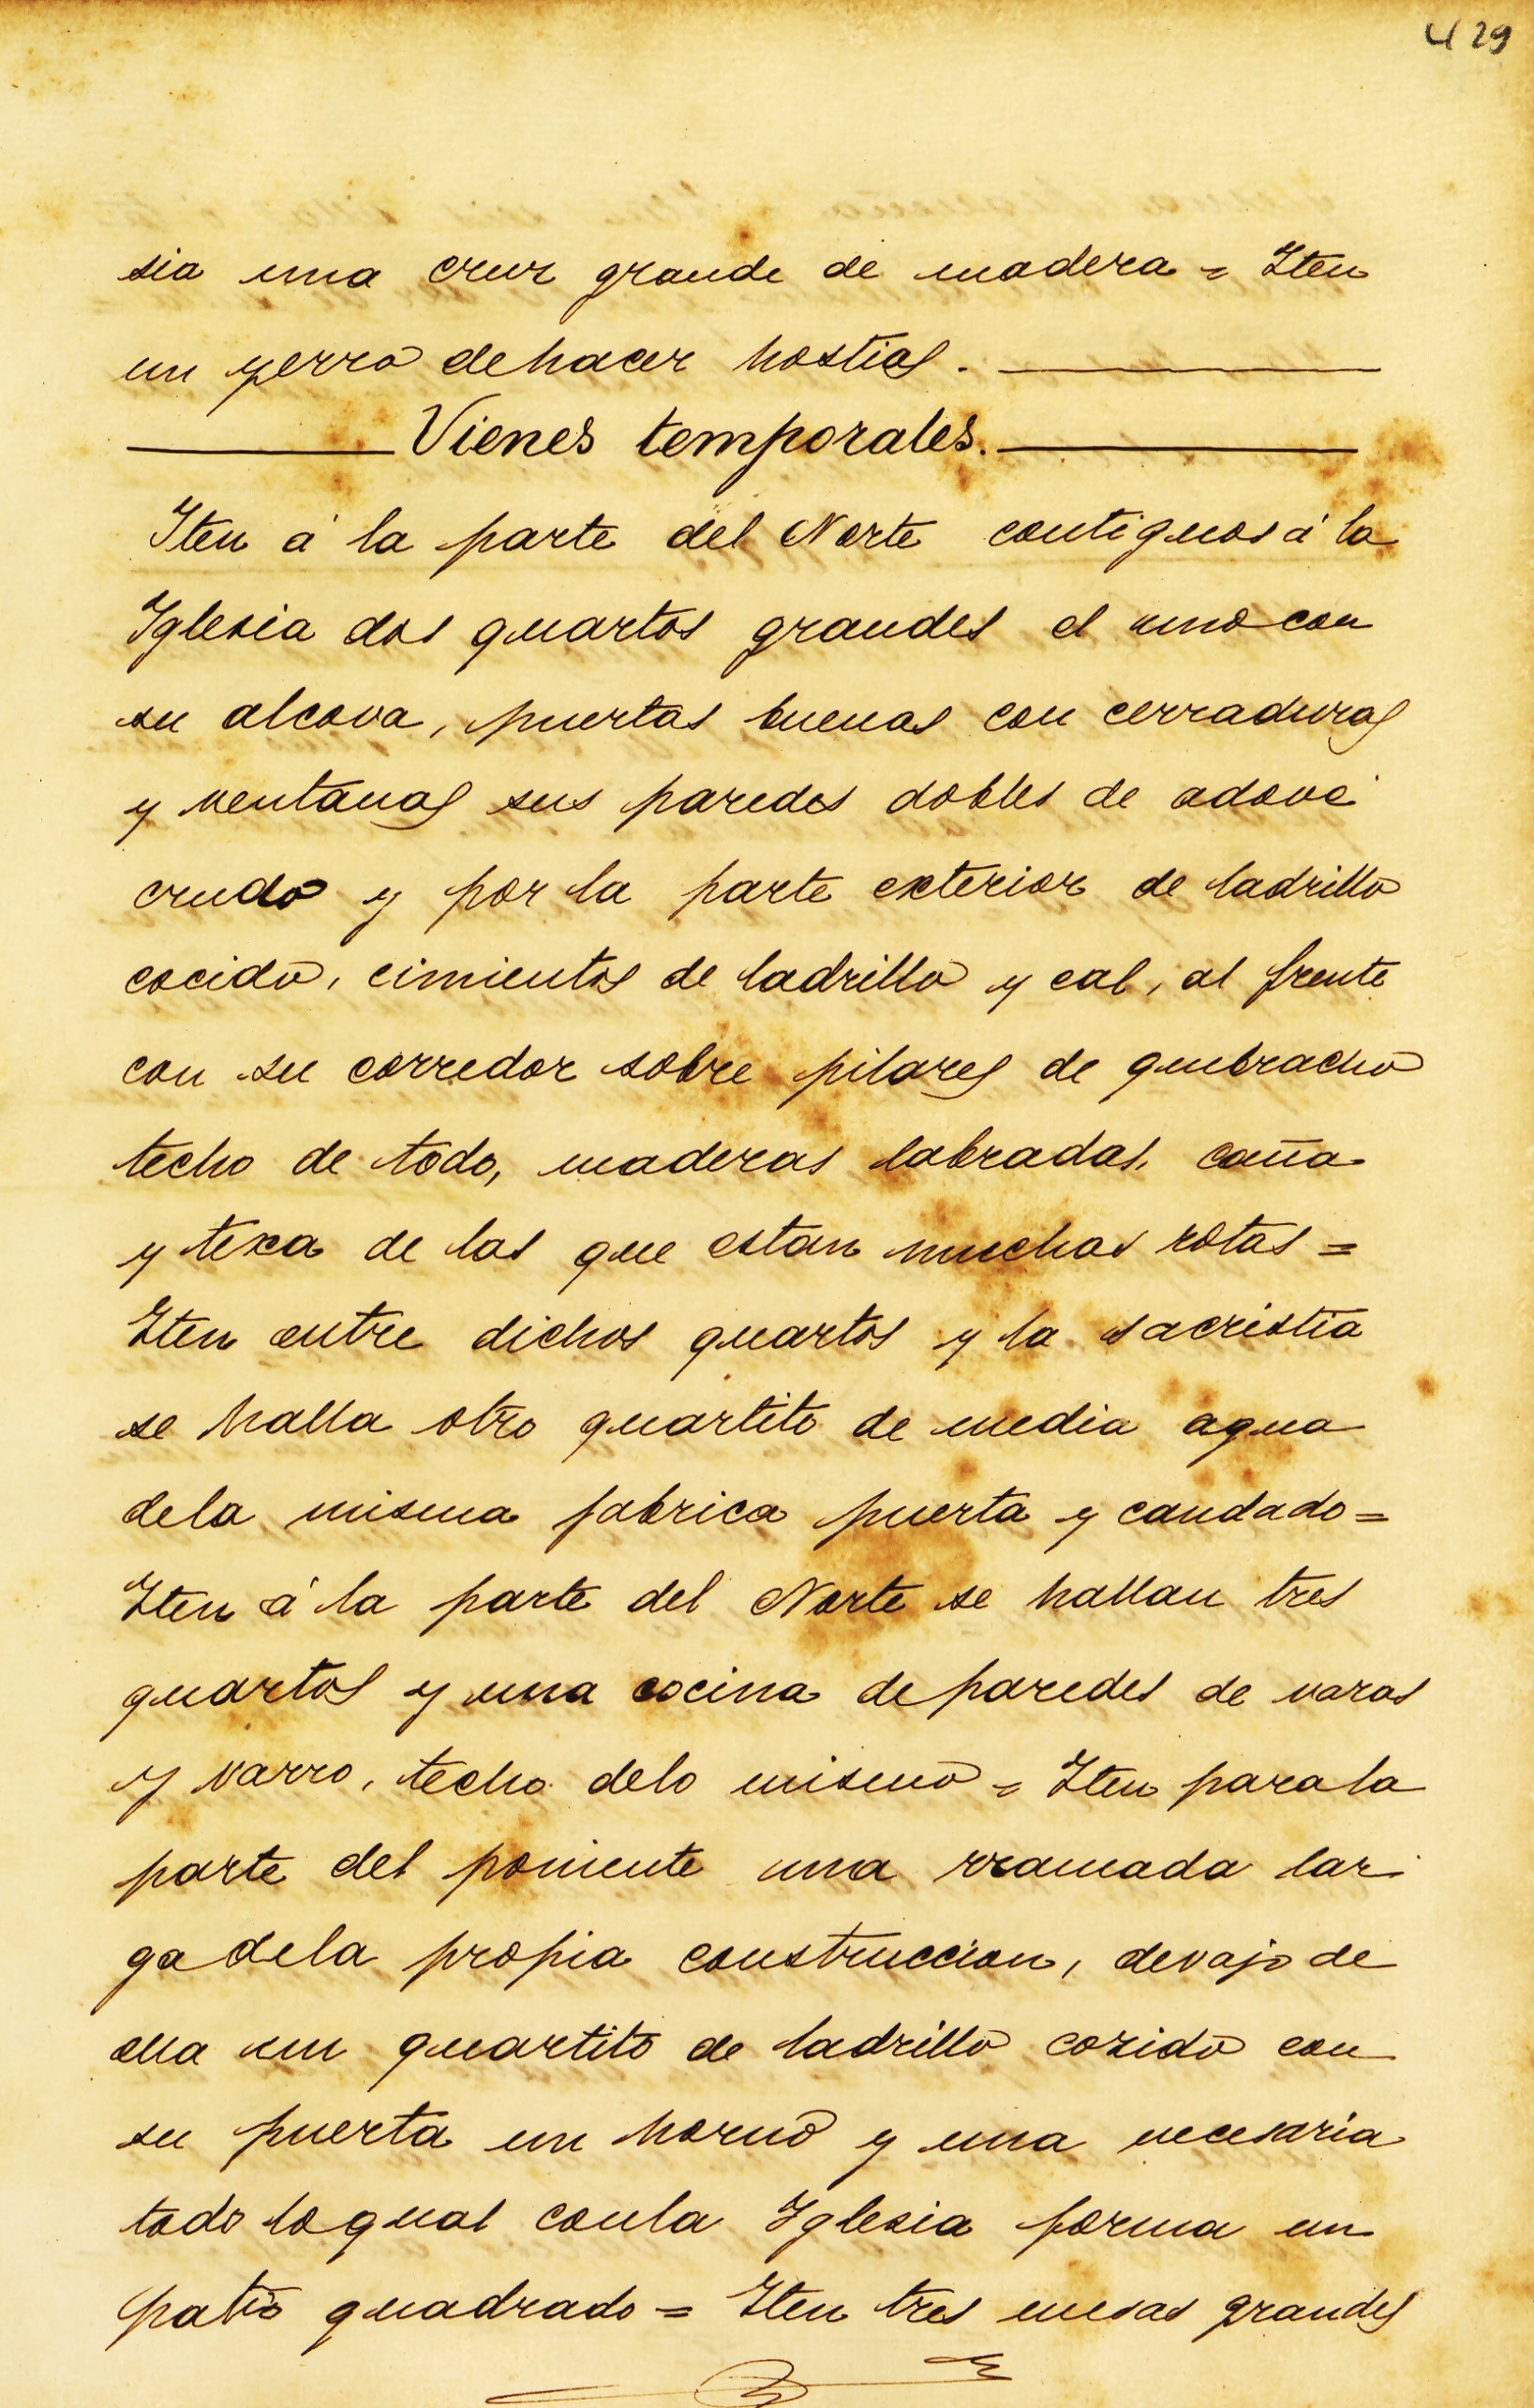 429
sia una cruz grande de madera = Iten
un yerro dehacer hostias. ———
——— Vienes temporales. ———
Iten á la parte del Norte contiguos á la
Iglesia dos quartos grandes el uno con
su alcova, puertas buenas con cerraduras
y ventanas sus paredes dobles de adove
crudo y por la parte exterior de ladrillo
cocido, cimientos de ladrillo y cal, al frente
con su corredor sobre pilares de quebracho
techo de todo, maderas labradas, caña
y texa de las que estan muchas rotas =
Iten entre dichos quartos y la sacristia
se halla otro quartito de media agua
dela misma fabrica puerta y candado =
Iten á la parte del Norte se hallan tres
quartos y una cocina de paredes de varas
y varro, techo delo mismo = Iten para la
parte del poniente una rramada lar-
ga dela propia construccion, devajo de
ella un quartito de ladrillo cozido con
su puerta un horno y una necesaria
todo loqual conla Iglesia forma un
patio quadrado = Iten tres mesas grandes